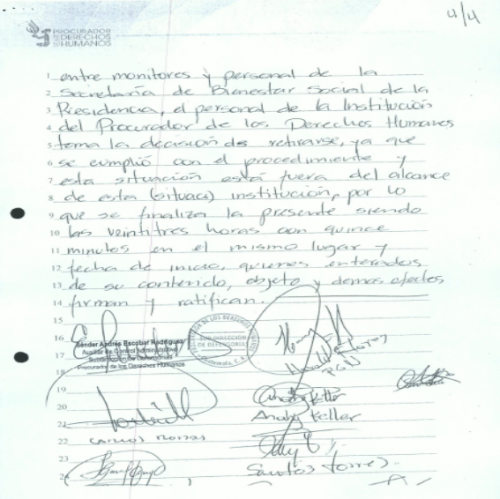 4/4
PROCURADOR
DE LOS DERECHOS
HUMANOS
1 entre monitores y personal de la
2 Secretaría de Bienestar Social de la
3 Presidencia, el personal de la Institución
4 del Procurador de los Derechos Humanos
5 toma la decisión de retirarse, ya que
6 se cumplió con el procedimiento y
7 esta situación está fuera del alcance
8 de esta (situaci) institución, por lo
9 que se finaliza la presente siendo
10 las veintitres horas con quince
11 minutos en el mismo lugar y
12 fecha de inicio, quienes enterados
13 de su contenido, objeto y demas efectos
14 firman y ratifican.
15
16
17
Sender Andrés Escobar Rodríguez
Auxiliar de
Procurador de los Derechos Humanos
DE DEFENSORIAS
PGN
18
19
20
Anaby Keller
21
22 Carlos
23
Santos Torres
24